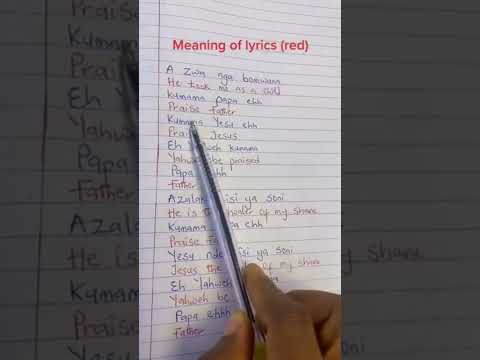 Meaning of lyrics (red)
A zwa nga bomwana
He took me as a child
Kumama papa ehh
Praise Father
Kumama Yesu ehh
Praise Jesus
Eh kumama
Yahweh be praised
Papa ehh
Father
ya soni
He is of my shame
Kumama ehh
Praise
Yesu nde ya soni
Jesus the of my shame
Eh Yahweh
Yahweh be
Papa ehhh
Father